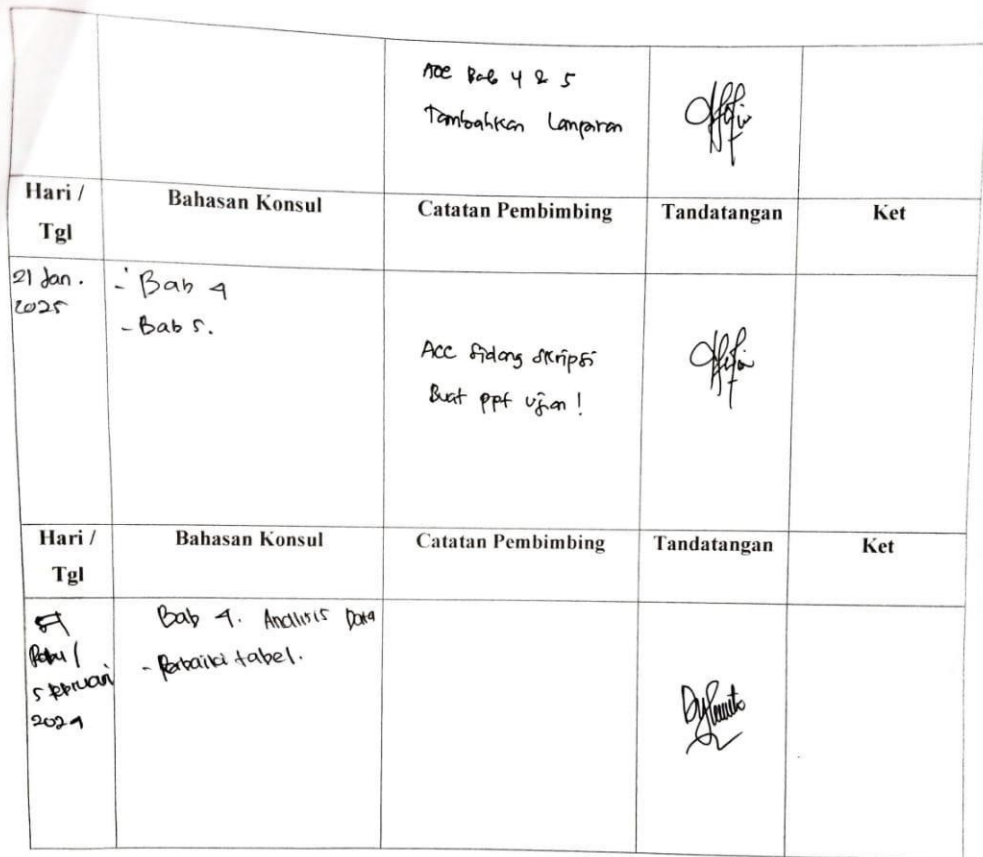 Acc Bab 4 & 5
Tambahkan Lampiran
Hari / Tgl
Bahasan Konsul
Catatan Pembimbing
Tandatangan
Ket
21 Jan. 2025
- Bab 4
- Bab 5.
Acc Sidang Skripsi
Buat ppt ujian !
Hari / Tgl
Bahasan Konsul
Catatan Pembimbing
Tandatangan
Ket
Rabu /
5 Februari
2024
Bab 4. Analisis Data
- Perbaiki tabel.